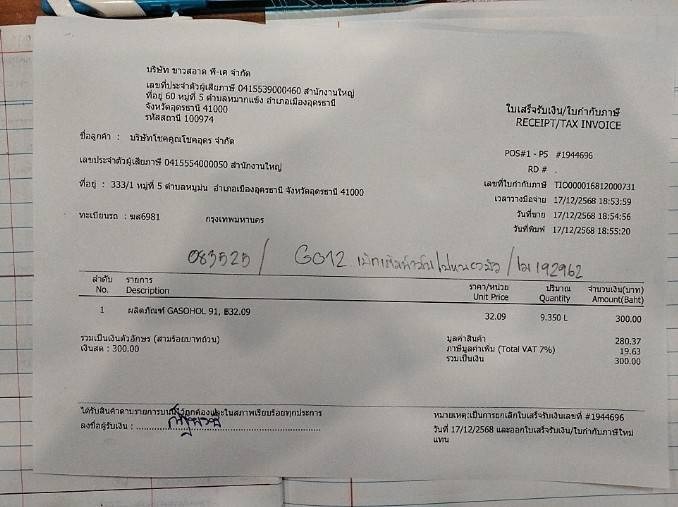 บริษัท ขาวสอาด พี-เค จำกัด
เลขที่ประจำตัวผู้เสียภาษี 0415539000460 สำนักงานใหญ่
ที่อยู่ 60 หมู่ที่ 5 ตำบลหมากแข้ง อำเภอเมืองอุดรธานี
จังหวัดอุดรธานี 41000
รหัสสถานี 100974
ใบเสร็จรับเงิน/ใบกำกับภาษี
RECEIPT/TAX INVOICE
ชื่อลูกค้า : บริษัทโชคคูณโชคอุดร จำกัด
POS#1 - P5 #1944696
RD # .
เลขประจำตัวผู้เสียภาษี 0415554000050 สำนักงานใหญ่
เลขที่ใบกำกับภาษี TIO000016812000731
ที่อยู่ : 333/1 หมู่ที่ 5 ตำบลหมูม่น อำเภอเมืองอุดรธานี จังหวัดอุดรธานี 41000
เวลาวางมือจ่าย 17/12/2568 18:53:59
ทะเบียนรถ : ฆส6981 กรุงเทพมหานคร
วันที่ขาย 17/12/2568 18:54:56
วันที่พิมพ์ 17/12/2568 18:55:20
083525 / GO12 / 192962
ลำดับ รายการ ราคา/หน่วย ปริมาณ จำนวนเงิน(บาท)
No. Description Unit Price Quantity Amount(Baht)
1 ผลิตภัณฑ์ GASOHOL 91, ฿32.09 32.09 9.350 L 300.00
รวมเป็นเงินตัวอักษร (สามร้อยบาทถ้วน)
เงินสด : 300.00
มูลค่าสินค้า 280.37
ภาษีมูลค่าเพิ่ม (Total VAT 7%) 19.63
รวมเป็นเงิน 300.00
ได้รับสินค้าตามรายการบนนี้ไว้ถูกต้องและในสภาพเรียบร้อยทุกประการ
ลงชื่อผู้รับเงิน :
หมายเหตุ:เป็นการยกเลิกใบเสร็จรับเงินเลขที่ #1944696
วันที่ 17/12/2568 และออกใบเสร็จรับเงิน/ใบกำกับภาษีใหม่
แทน